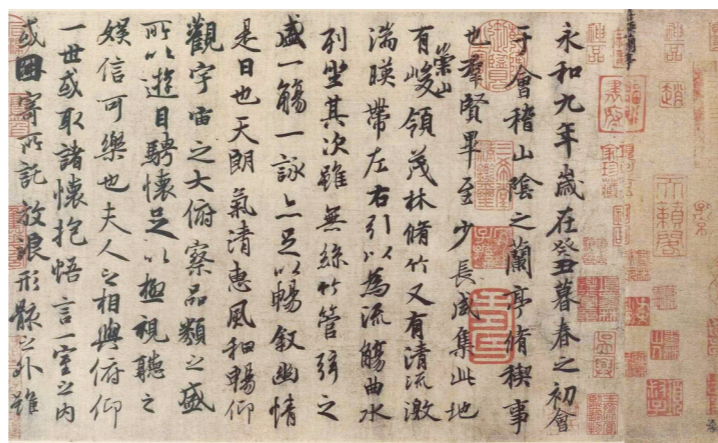 永和九年歲在癸丑暮春之初會
于會稽山陰之蘭亭脩稧事
也羣賢畢至少長咸集此地
有崇山峻領茂林脩竹又有清流激
湍暎帶左右引以為流觴曲水
列坐其次雖無絲竹管弦之
盛一觴一詠亦足以暢敘幽情
是日也天朗氣清惠風和暢仰
觀宇宙之大俯察品類之盛
所以遊目騁懷足以極視聽之
娛信可樂也夫人之相與俯仰
一世或取諸懷抱悟言一室之內
或因寄所託放浪形骸之外雖
神品
趙
天籟閣
神品